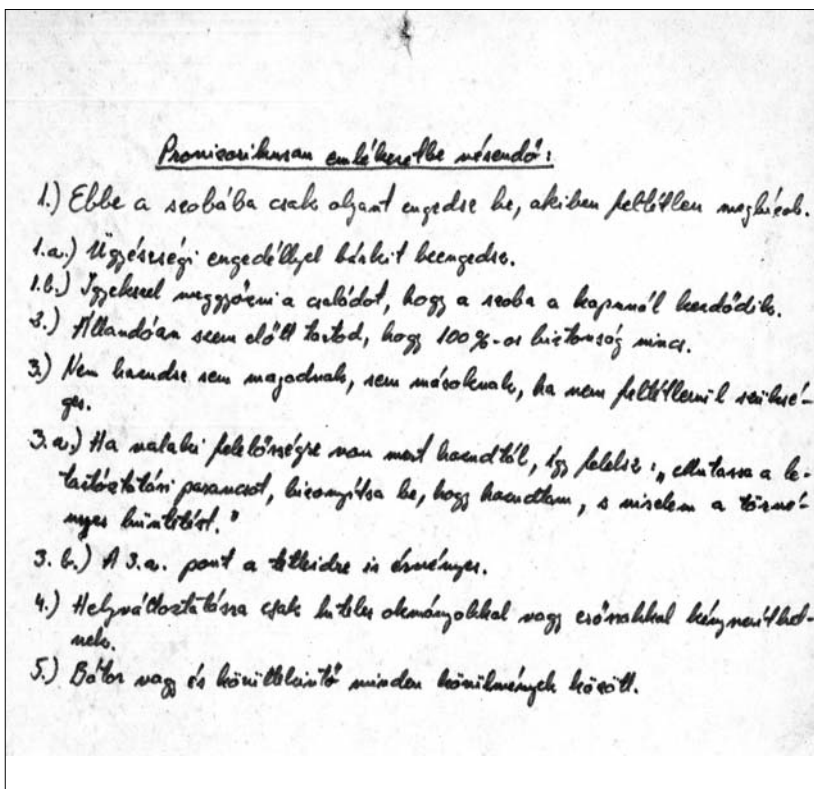 Provizorikusan emlékezetbe vésendő:
1.) Ebbe a szobába csak olyant engedsz be, akiben feltétlen megbízol.
1.a.) Ügyészségi engedéllyel bárkit beengedsz.
1.b.) Igyekszel meggyőzni a családot, hogy a szoba a kapunál kezdődik.
2.) Állandóan szem előtt tartod, hogy 100%-os biztonság nincs.
3.) Nem hazudsz sem magadnak, sem másoknak, ha nem feltétlenül szüksé-
ges.
3.a.) Ha valaki felelősségre von mert hazudtál, így felelsz: „Mutassa a le-
tartóztatási parancsot, bizonyítsa be, hogy hazudtam, s viselem a törvé-
nyes büntetést."
3.b.) A 3.a. pont a tetteidre is érvényes.
4.) Helyváltoztatásra csak hiteles okmányokkal vagy erőszakkal kényszeríthet-
nek.
5.) Bátor vagy és körültekintő minden körülmények között.